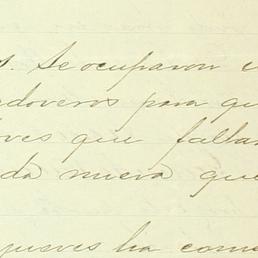 s. Se ocuparon e
doveros para qu
ves que falta
da nueva que
jueves ha come